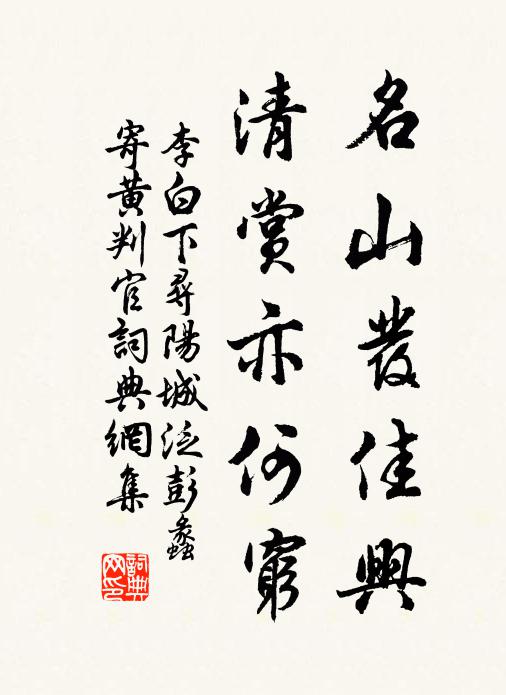 名山發佳興
清賞亦何窮
李白下尋陽城泛彭蠡
寄黃判官詞典網集
詞典
网印